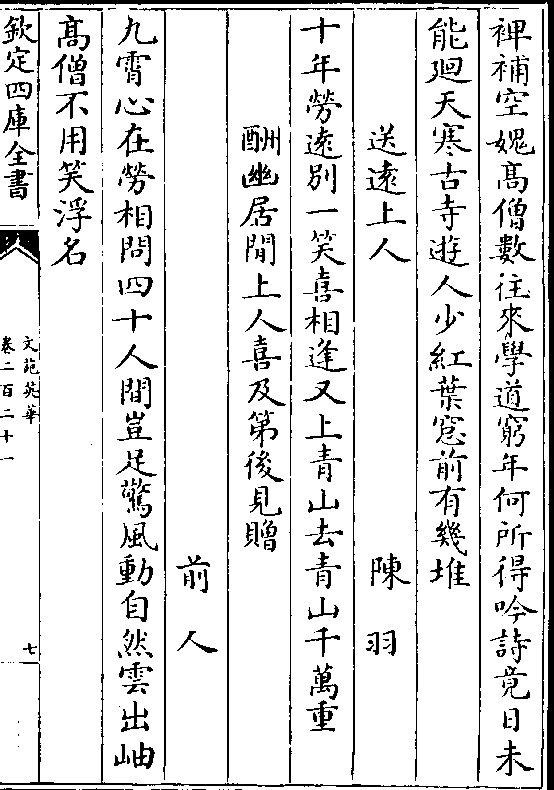 裨補空媿髙僧數往來學道窮年何所得吟詩竟日未
能廻天寒古寺遊人少紅葉窻前有幾堆
送遠上人
陳羽
十年勞遠别一笑喜相逢又上青山去青山千萬重
酬幽居閒上人喜及第後見贈
前人
九霄心在勞相問四十人間豈足驚風動自然雲出岫
髙僧不用笑浮名
欽定四庫全書
文苑英華
卷二百二十一
七